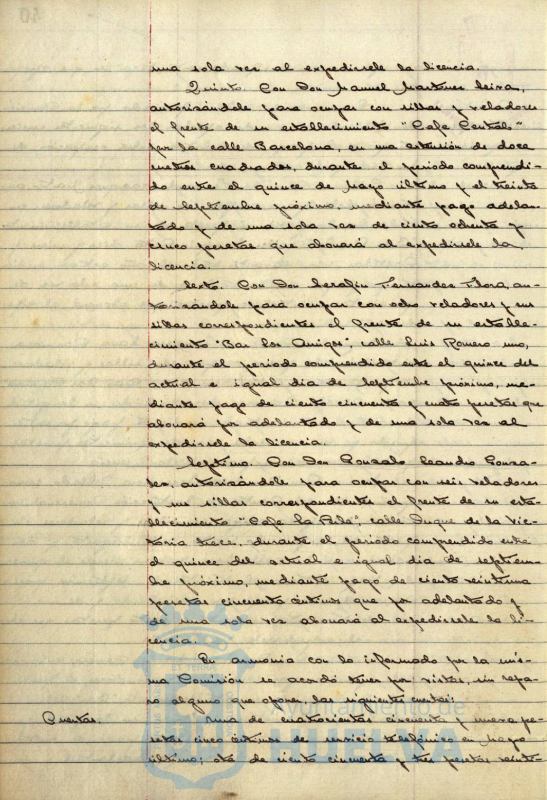 una sola vez al expedirsele la licencia.
Quinto. Con Don Manuel Martinez Leira,
autorizándole para ocupar con sillas y veladores
el frente de su establecimiento "Cafe Central"
por la calle Barcelona, en una extensión de doce
metros cuadrados, durante el periodo comprendi-
do entre el quince de Mayo último y el treinta
de Septiembre próximo, mediante pago adelan-
tado y de una sola vez de ciento ochenta y
cinco pesetas que abonará al expedirsele la
licencia.
Sexto. Con Don Serafin Fernandez Flora, au-
torizándole para ocupar con ocho veladores y sus
sillas correspondientes el frente de su estable-
cimiento "Bar los Amigos", calle Luis Romero uno,
durante el periodo comprendido entre el quince del
actual e igual dia de Septiembre próximo, me-
diante pago de ciento cincuenta y cuatro pesetas que
abonará por adelantado y de una sola vez al
expedirsele la licencia.
Septimo. Con Don Gonzalo Leandro Gonza-
lez, autorizándole para ocupar con seis veladores
y sus sillas correspondientes el frente de su esta-
blecimiento "Cafe La Perla", calle Duque de la Vic-
toria trece, durante el periodo comprendido entre
el quince del actual e igual dia de Septiem-
bre próximo, mediante pago de ciento veintiuna
pesetas cincuenta céntimos que por adelantado y
de una sola vez abonará al expedirsele la li-
cencia.
En armonia con lo informado por la mis-
ma Comisión se acordó tener por vistas, sin repa-
ro alguno que oponer, las siguientes cuentas:
Cuentas. Una de cuatrocientas cincuenta y nueve pe-
setas cinco céntimos de servicio telefónico en Mayo
último; otra de ciento cincuenta y tres pesetas veinti-
Ayuntamiento de
HUELVA